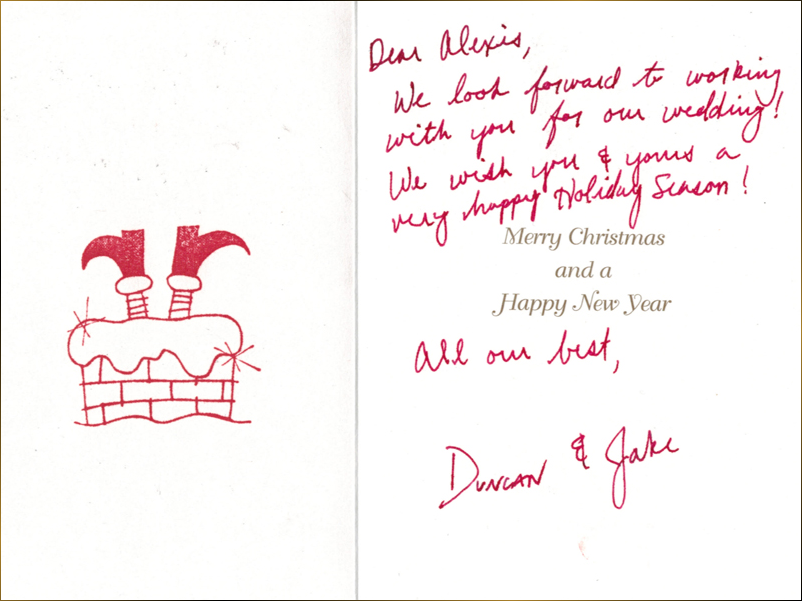 Dear Alexis,
We look forward to working
with you for our wedding!
We wish you & yours a
very happy Holiday Season!
Merry Christmas
and a
Happy New Year
All our best,
Duncan & Jake